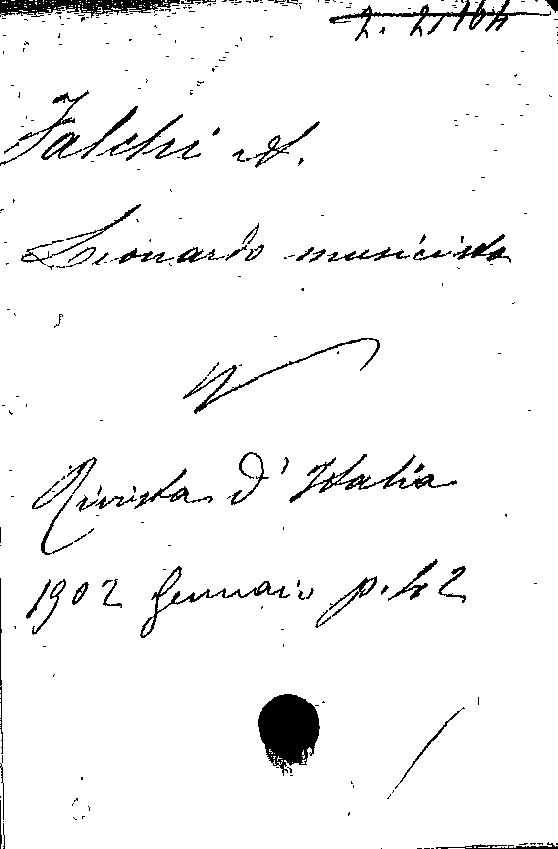 Falchi A.
Leonardo musicista
Rivista d'Italia
1902 Gennaio p. 42